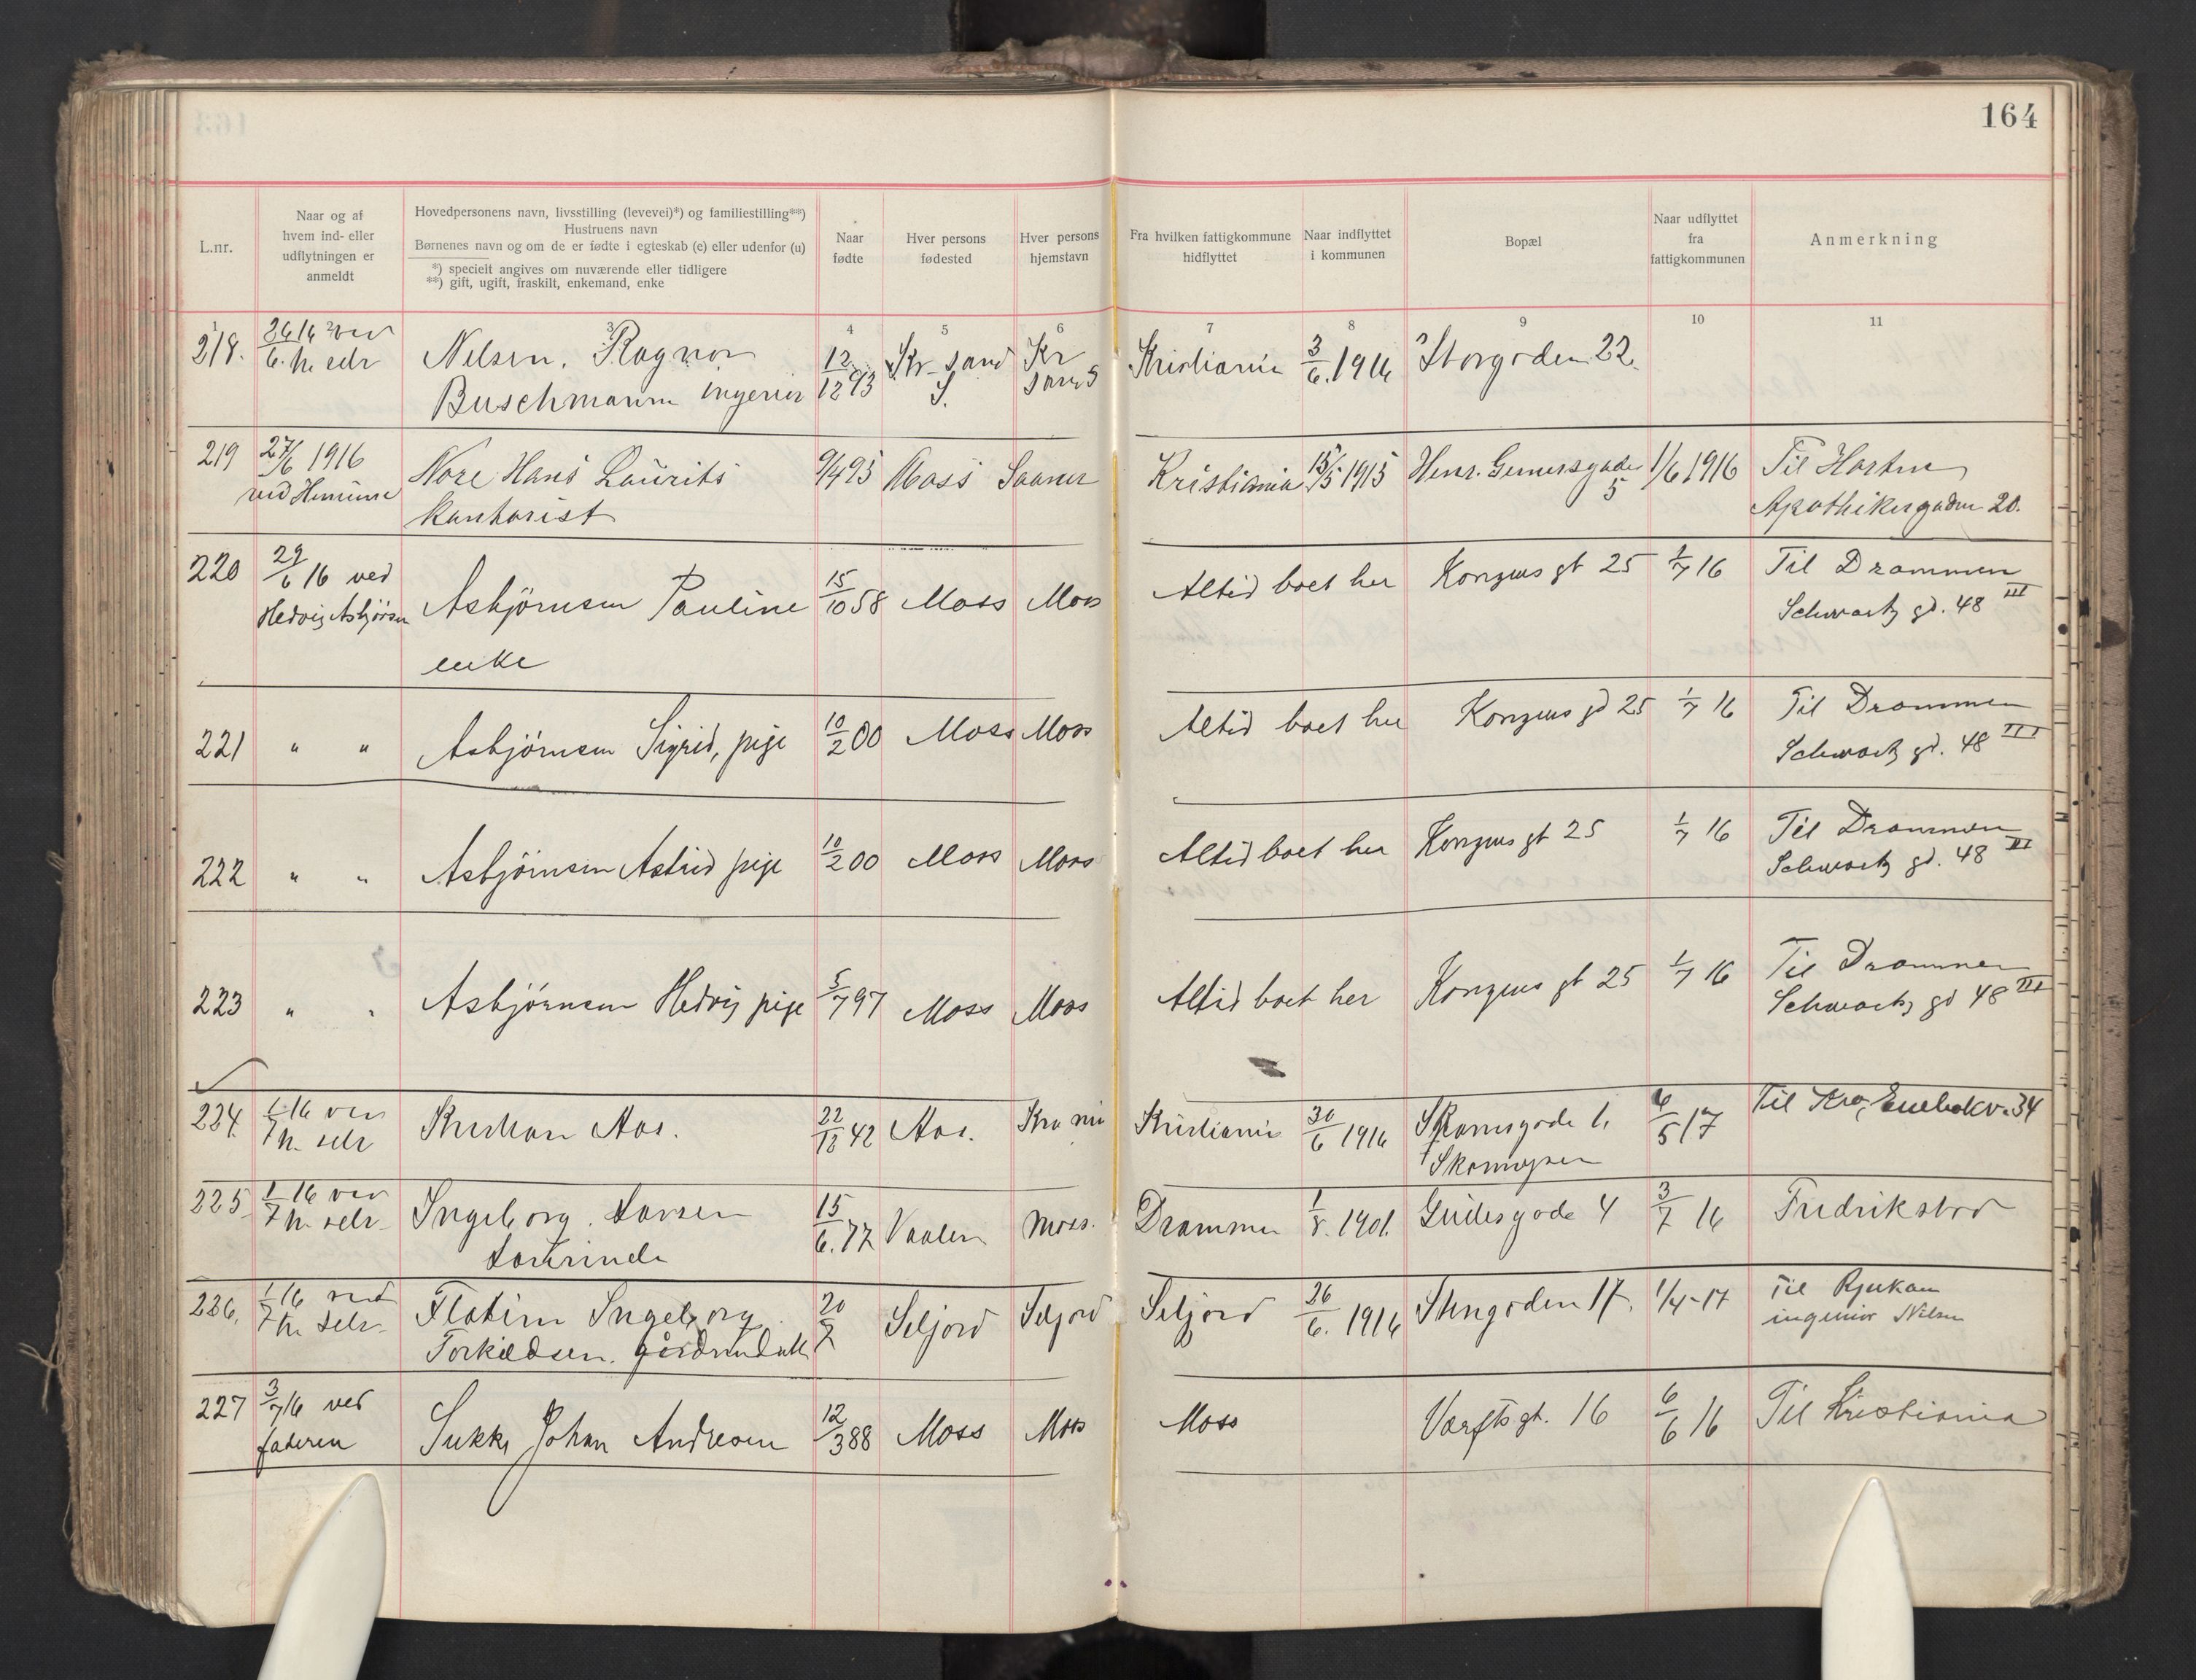 164
L.nr.
Naar og af
hvem ind- eller
udflytningen er
anmeldt
Hovedpersonens navn, livsstilling (levevei)*) og familiestilling**)
Hustruens navn
Børnenes navn og om de er fødte i egteskab (e) eller udenfor (u)
*) specielt angives om nuværende eller tidligere
**) gift, ugift, fraskilt, enkemand, enke
Naar
fødte
Hver persons
fødested
Hver persons
hjemstavn
Fra hvilken fattigkommune
hidflyttet
Naar indflyttet
i kommunen
Bopæl
Naar udflyttet
fra
fattigkommunen
Anmerkning
1 2 3 4 5 6 7 8 9 10 11
218. 26/6 16 ved Nelsen. Ragnar 12/12 93 Kr-sand Kr Kristiania 3/6. 1916 Storgaden 22.
h. selv Buschmann ingeniør S. sand S
219 27/6 1916 Nore Hans Laurits 9/4 95 Moss Saaner Kristiania 15/5 1915 Henr. Gernersgade 1/6 1916 Til Horten
ved Hermine kontorist 5 Apothekergaden 20.
220 29/6 16 ved Asbjørnsen Pauline 15/10 58 Moss Moss Altid boet her Kongens gt 25 1/7 16 Til Drammen
Hedvig Asbjørnsen enke Schwartz gd. 48 III
221 " " Asbjørnsen Sigrid, pige 10/2 00 Moss Moss Altid boet her Kongens gd 25 1/7 16 Til Drammen
Schwartz gd. 48 III
222 " " Asbjørnsen Astrid pige 10/2 00 Moss Moss Altid boet her Kongens gt 25 1/7 16 Til Drammen
Schwartz gd. 48 III
223 " " Asbjørnsen Hedvig pige 5/7 97 Moss Moss Altid boet her Kongens gt 25 1/7 16 Til Drammen
Schwartz gd 48 III
224. 1/7 16 ved Kristian Aas. 22/12 42 Aas. Kra nia Kristiania 30/6 1916 1. 6/5 17 Til Kra, Enebakv. 34
h. selv
225 1/7 16 ved Ingeborg. Larsen 15/6. 77 Vaaler Moss. Drammen 1/8. 1901. Gudesgade 4 3/7 16 Fredrikstad
h. selv
226. 1/7 16 ved Flatin Ingeborg 20/7 Seljord Seljord Seljord 26/6. 1916 Stengaden 17. 1/4-17 Til Rjukan
h. selv Torkildsen. ingeniør Nilsen
227 3/7 16 ved Sukke Johan Andresen 12/3 88 Moss Moss Moss Værftsgt. 16 6/6 16 Til Kristiania
faderen